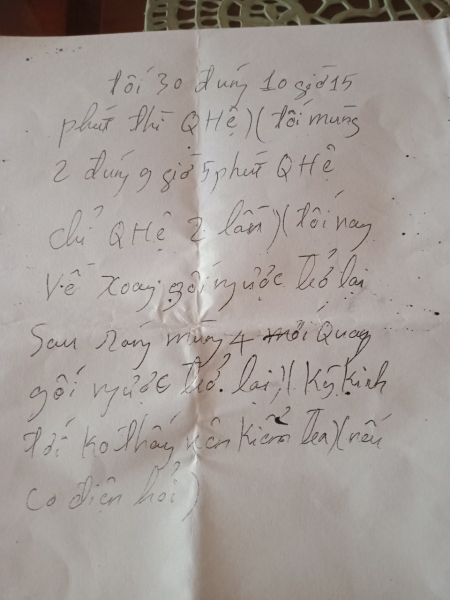 tối 30 đúng 10 giờ 15
phút thì QHệ)(tối mùng
2 đúng 9 giờ 5 phút QHệ
chỉ QHệ 2 lần)(tối nay
Về xoay gối ngược trở lại
Sau sáng mùng 4 mới Quay
gối ngược trở lại)(Kỳ Kinh
tới ko thấy nên kiểm tra)(nếu
có điện hỏi)